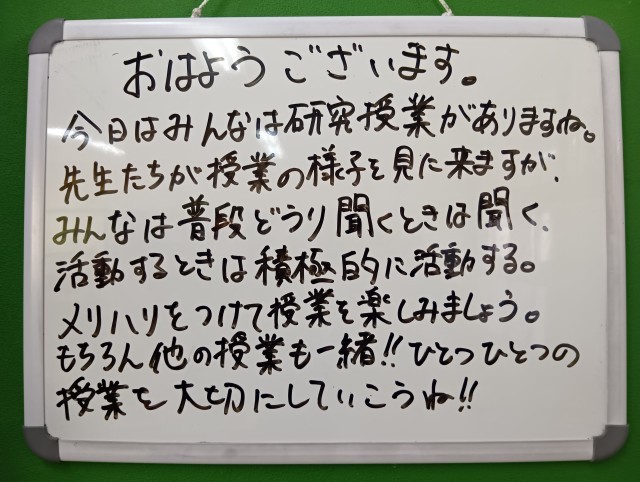 おはようございます。
今日はみんなは研究授業がありますね。
先生たちが授業の様子を見に来ますが、
みんなは普段どうり聞くときは聞く、
活動するときは積極的に活動する。
メリハリをつけて授業を楽しみましょう。
もちろん他の授業も一緒!!ひとつひとつの
授業を大切にしていこうね!!